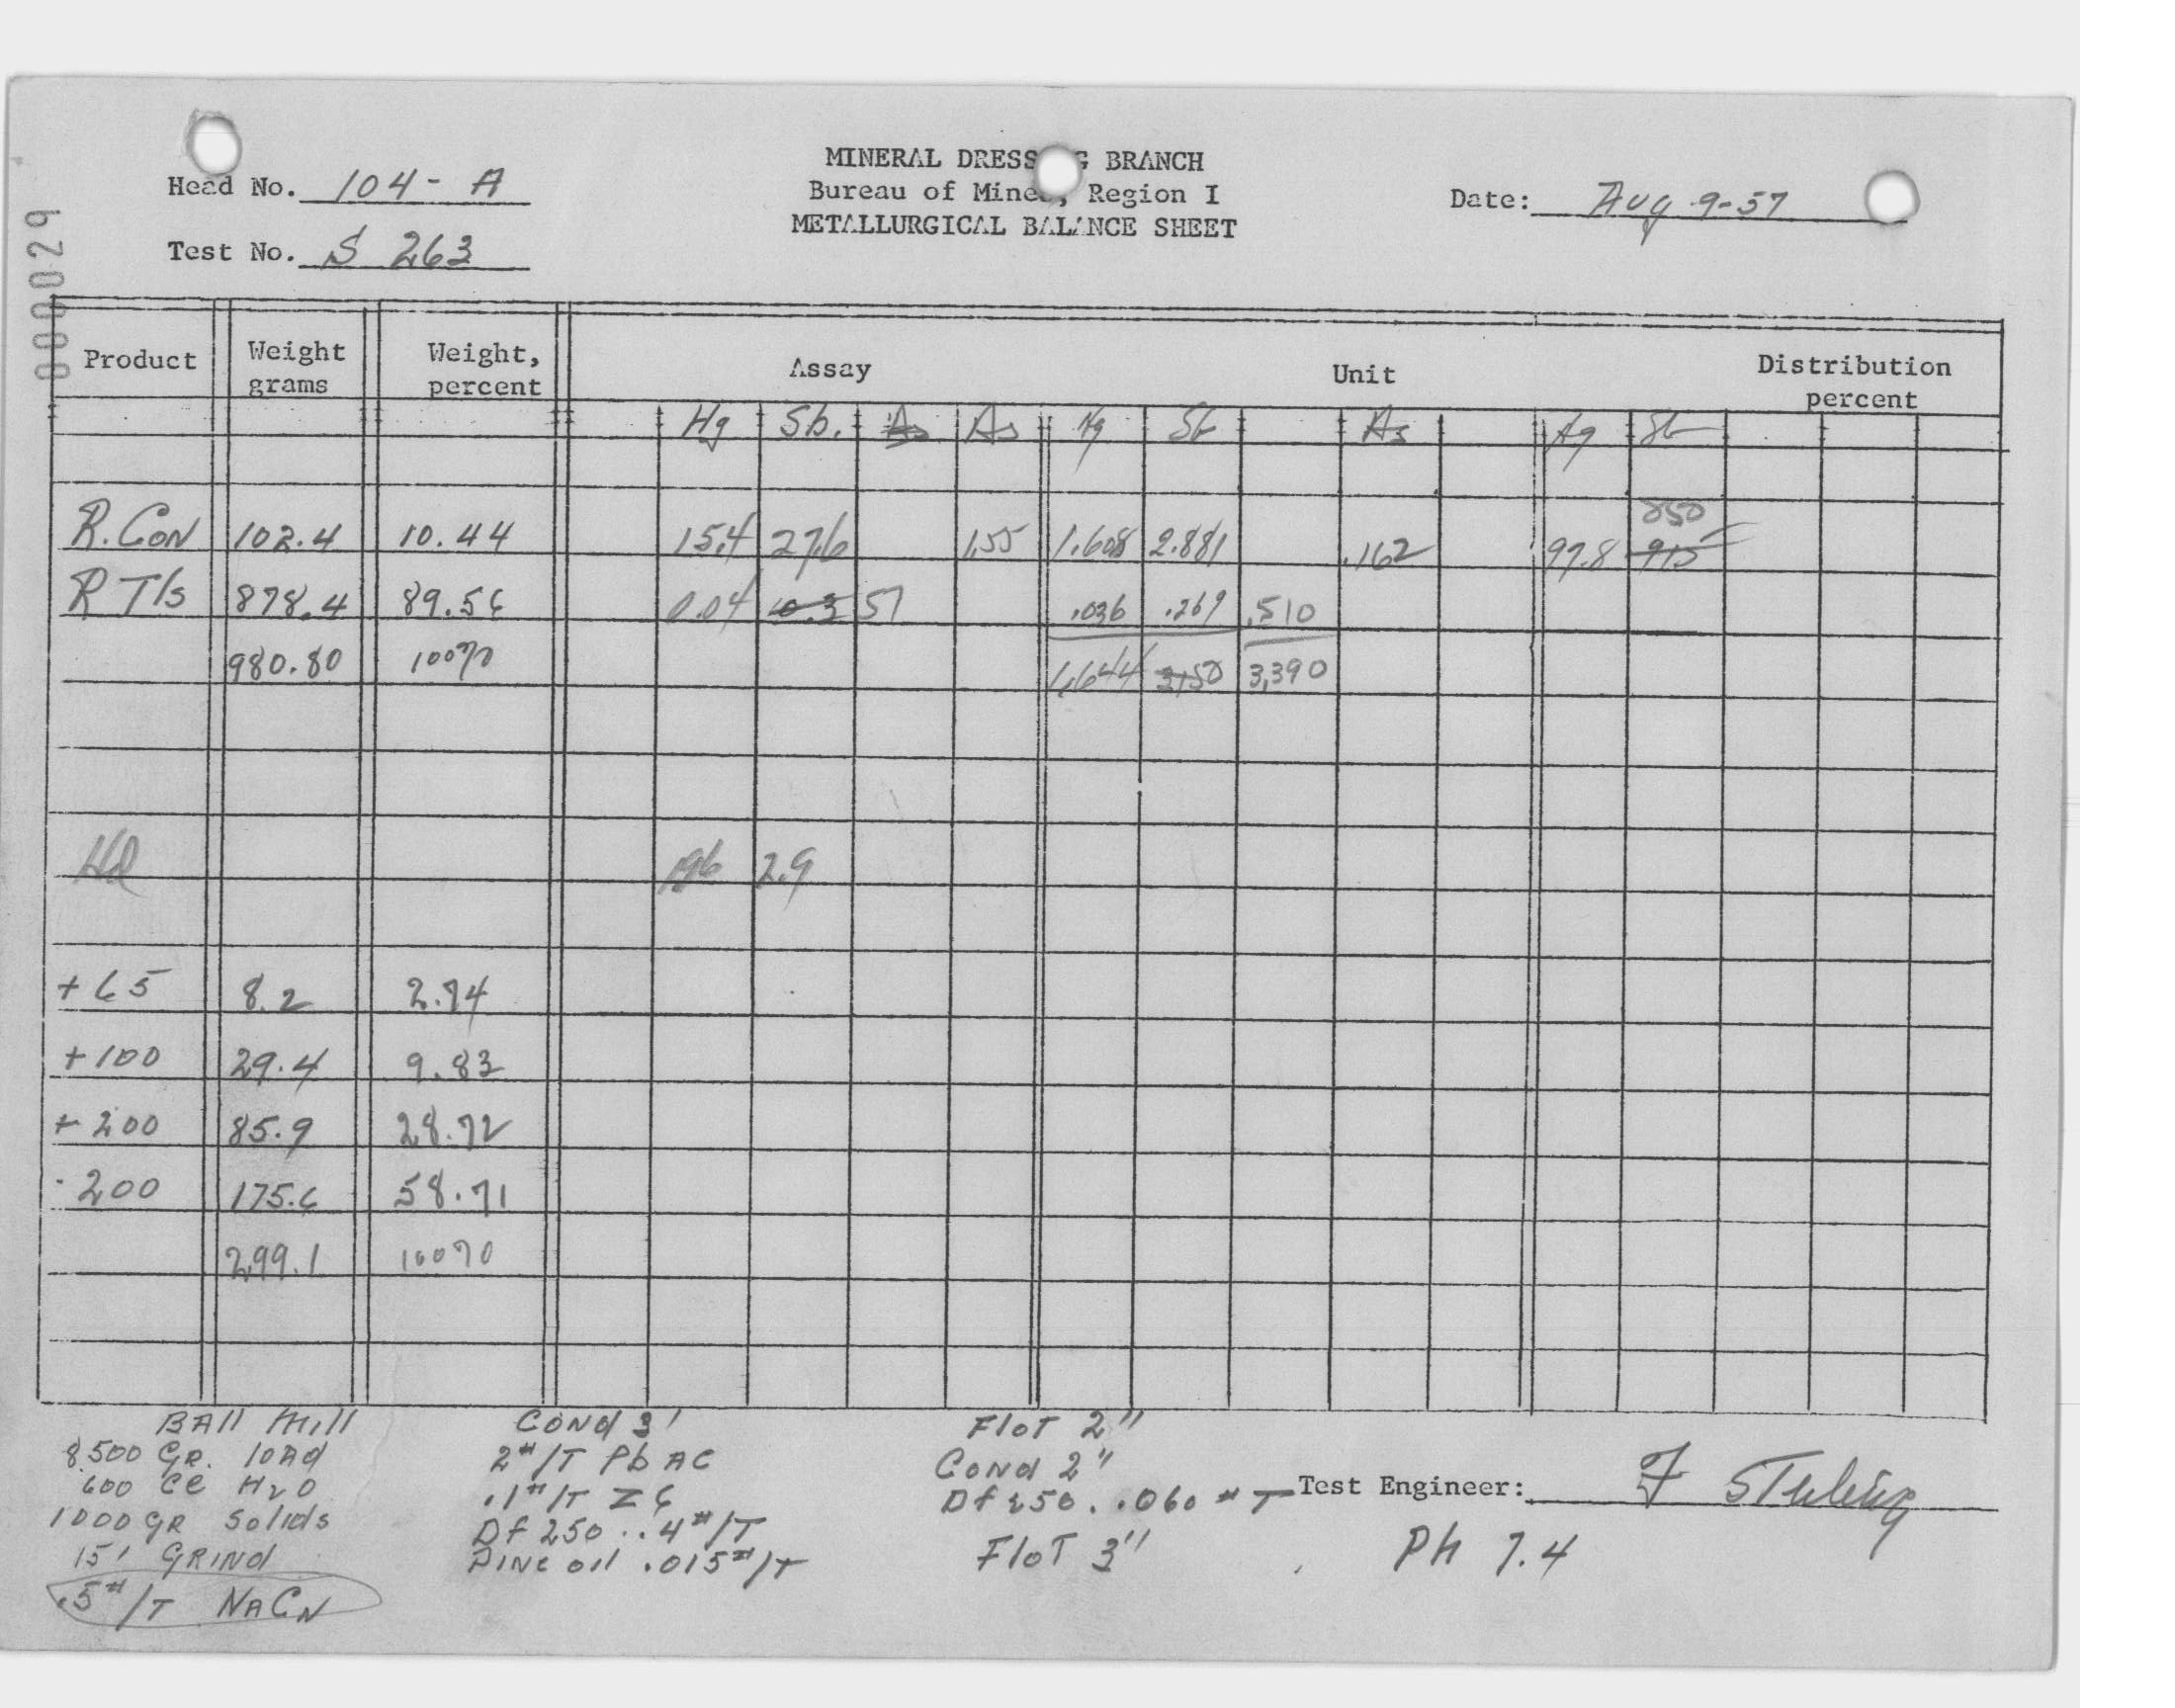 000029
Head No. 104- A
Test No. S 263
MINERAL DRESS G BRANCH
Bureau of Mines, Region I
METALLURGICAL BALANCE SHEET
Date: Aug 9-57
Product Weight grams Weight, percent Assay Unit Distribution percent
Hg Sb. As As Hg Sb As Hg Sb
850
R. Con 102.4 10.44 15.4 27.6 1.55 1.608 2.881 .162 97.8 915
R Tls 878.4 89.56 0.04 0.3 57 .036 .269 .510
980.80 100% 1.644 3.150 3.390
Hd 1.96 2.9
+65 8.2 2.74
+100 29.4 9.83
+200 85.9 28.72
-200 175.6 58.71
299.1 100%
Ball Mill
8500 Gr. load
600 cc H2O
1000 Gr Solids
15' Grind
.5#/T NaCN
Cond 3'
2#/T Pb Ac
.1#/T Z6
Df 250 . .4#/T
Pine oil .015#/T
Flot 2"
Cond 2"
Df 250 . .060 # T
Flot 3"
Test Engineer: F
Ph 7.4